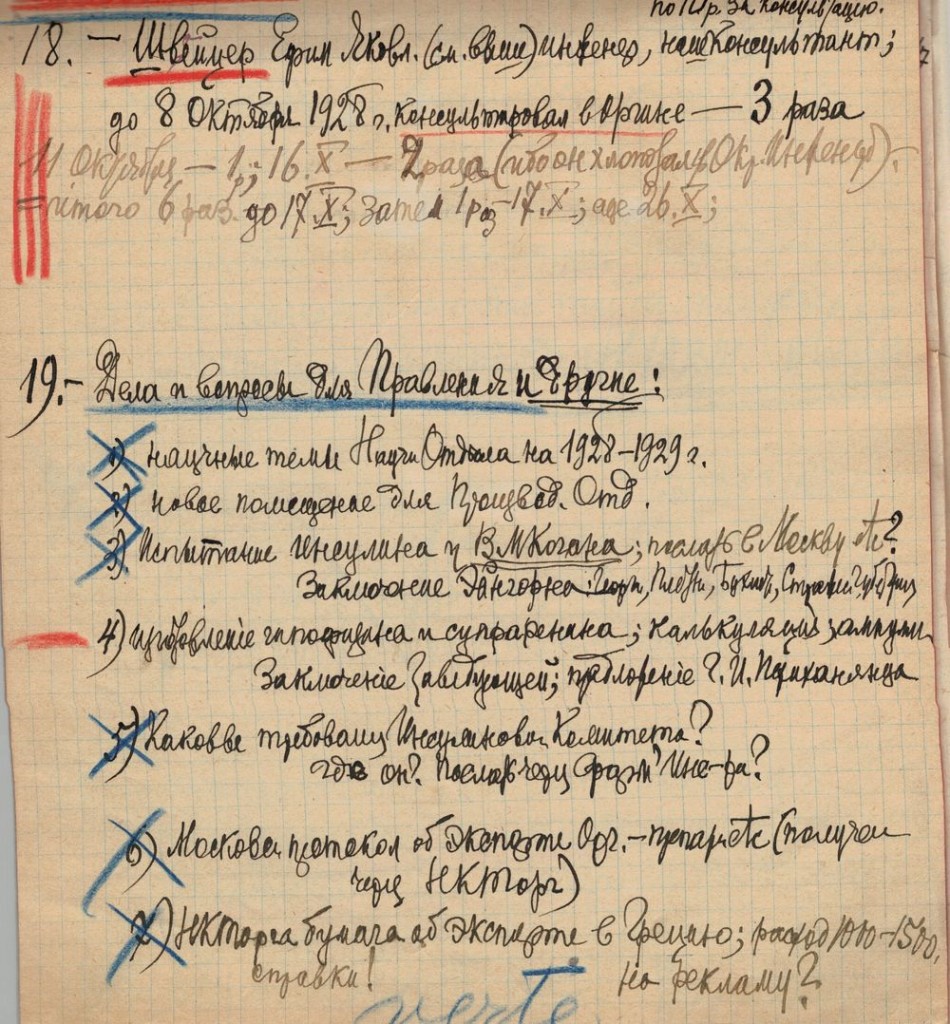 по П/р. за консультацию.
18. – Швейцер Ефим Яковл. (см. выше) инженер, наш консультант;
до 8 Октября 1928 г. консультировал в Оргине — 3 раза
11 Октября — 1 р.; 16. X — 2 раза (ибо он хлопотал у Окр. Инженер) –
= итого 6 раз до 17. X; затем 1 раз 17. X; 26. X;
19. – Дела и вопросы для Правления и другие:
1) научные темы Научн Отдела на 1928–1929 г.
2) новое помещение для Производ. Отд.
3) Испытание Инсулина у В. М. Когана; послать в Москву etc?
Заключение Эйнгорна
4) изготовление гипофизина и супраренина; калькуляция, ампулы
Заключение Заведующей; предложение Г. И.
5) Каковы требования Инсулинового Комитета?
где он? Послать через Ин-та?
6) Московск. протокол об экспорте Орг. – препар. etc (получен
через НКТорг)
7) НКТорга бумага об экспорте в Грецию; расход 1000–1500,
справки! на рекламу?
verte